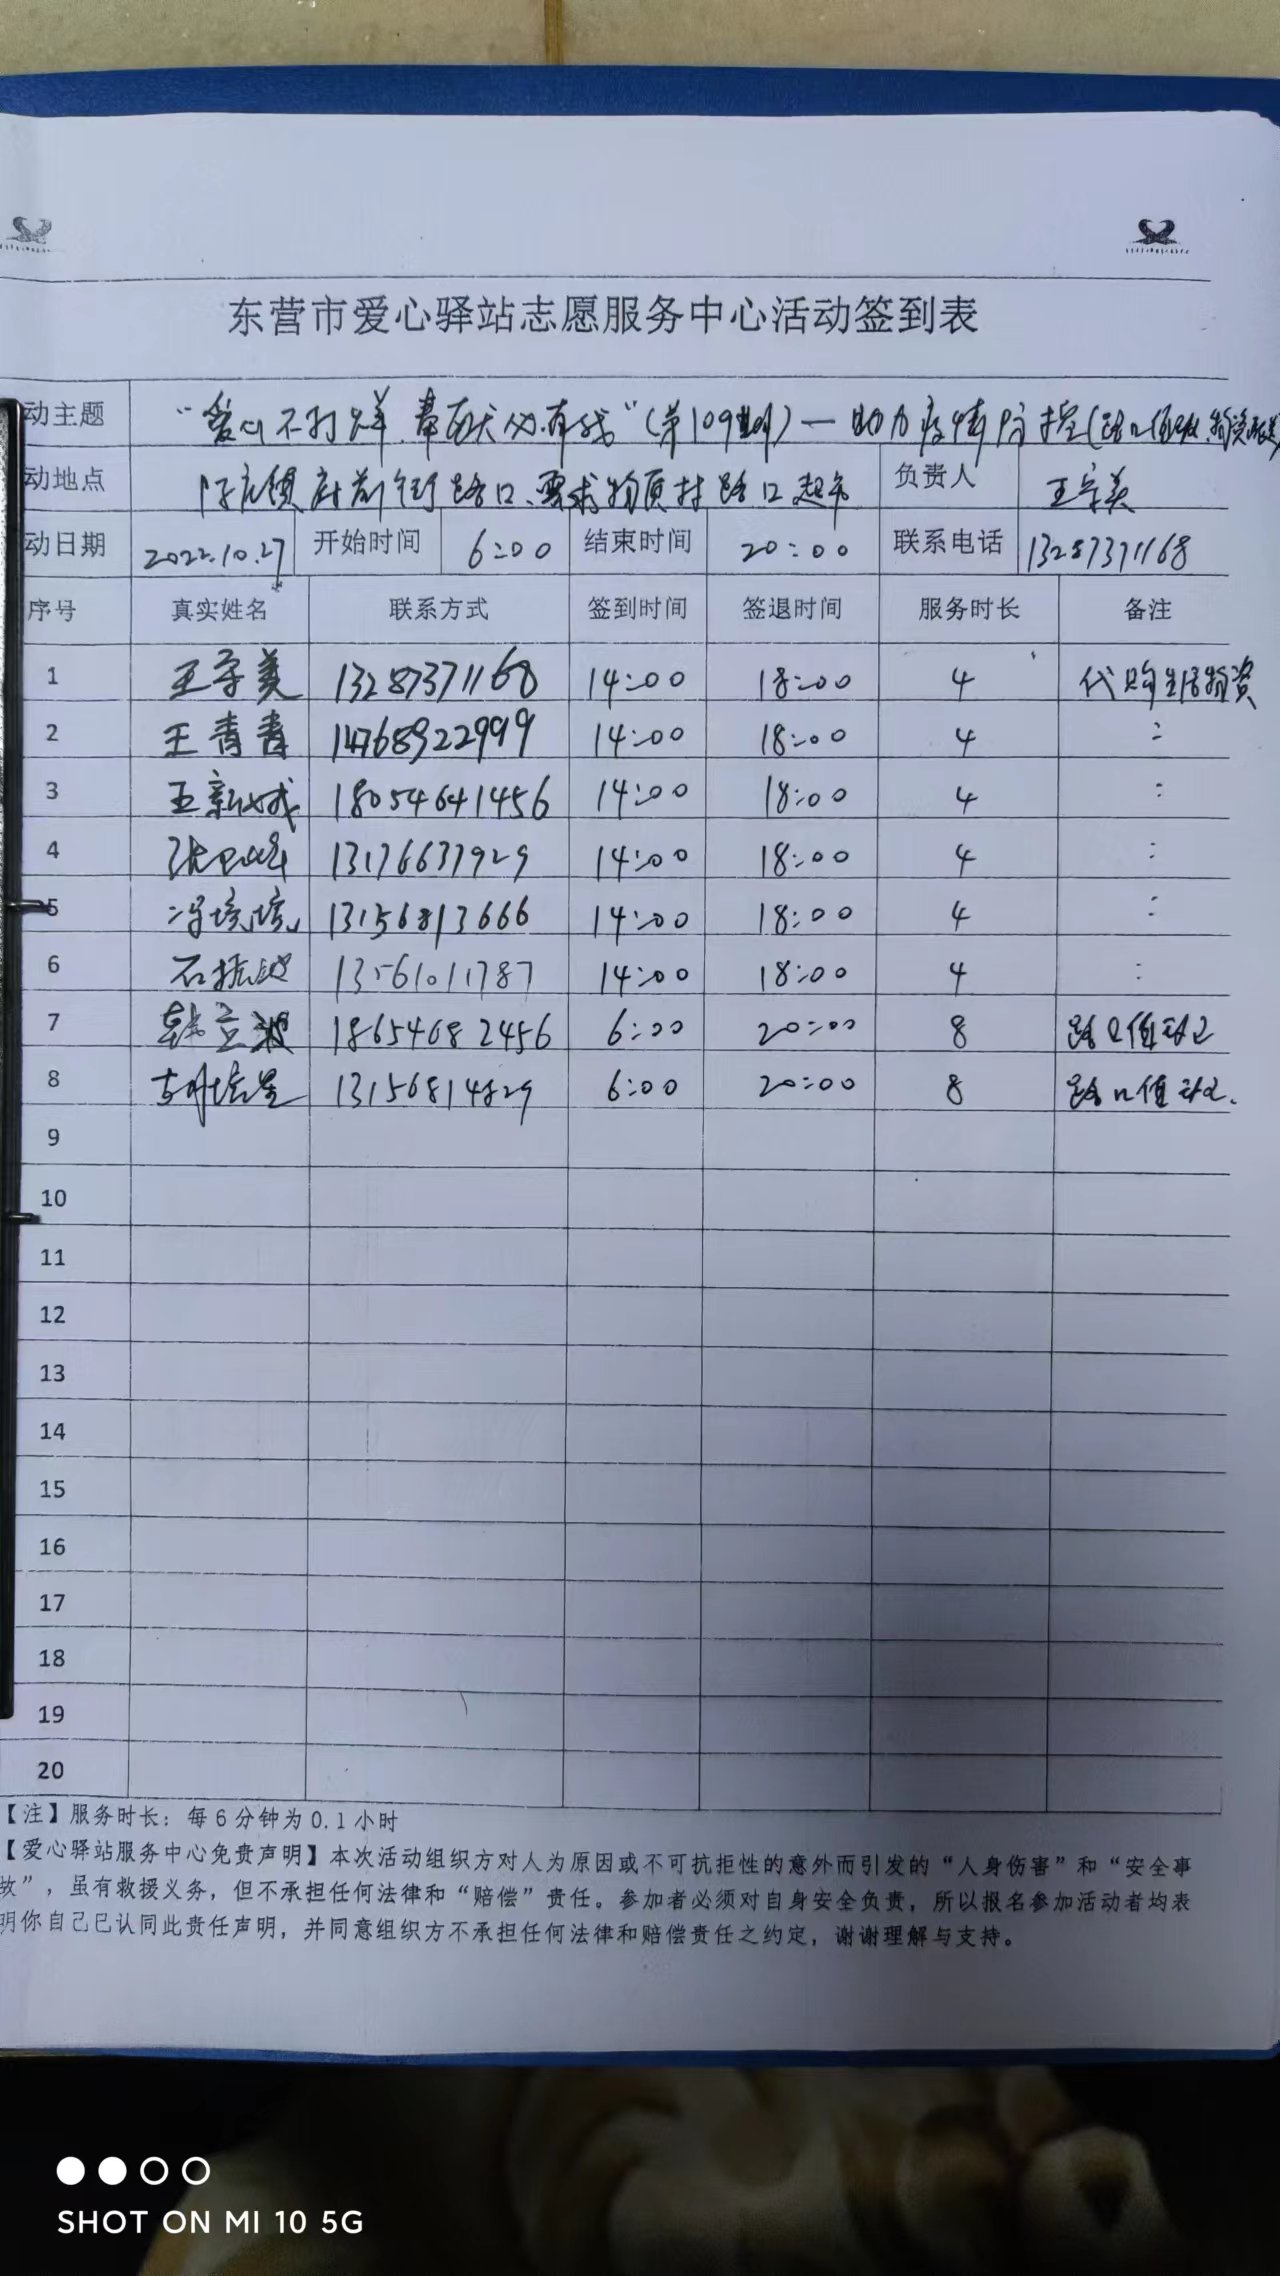 东营市爱心驿站志愿服务中心活动签到表
动主题 “爱心不打烊,帮百人必有我”(第109期)—助力疫情防控(路口值班、物资配送)
动地点 陈庄镇府前街路口、要求物质村路口超市 负责人 王守美
动日期 2022.10.27 开始时间 6:00 结束时间 20:00 联系电话 13287371168
序号 真实姓名 联系方式 签到时间 签退时间 服务时长 备注
1 王守美 13287371168 14:00 18:00 4 代购生活物资
2 王青青 14768922999 14:00 18:00 4 :
3 王新城 18054641456 14:00 18:00 4 :
4 13176637929 14:00 18:00 4 :
5 冯境境 13156813666 14:00 18:00 4 :
6 石振 13561011787 14:00 18:00 4 :
7 韩立波 18654682456 6:00 20:00 8 路口值班
8 胡培星 13156814829 6:00 20:00 8 路口值班.
9
10
11
12
13
14
15
16
17
18
19
20
【注】服务时长:每6分钟为0.1小时
【爱心驿站服务中心免责声明】本次活动组织方对人为原因或不可抗拒性的意外而引发的“人身伤害”和“安全事
故”,虽有救援义务,但不承担任何法律和“赔偿”责任。参加者必须对自身安全负责,所以报名参加活动者均表
明你自己已认同此责任声明,并同意组织方不承担任何法律和赔偿责任之约定,谢谢理解与支持。
SHOT ON MI 10 5G